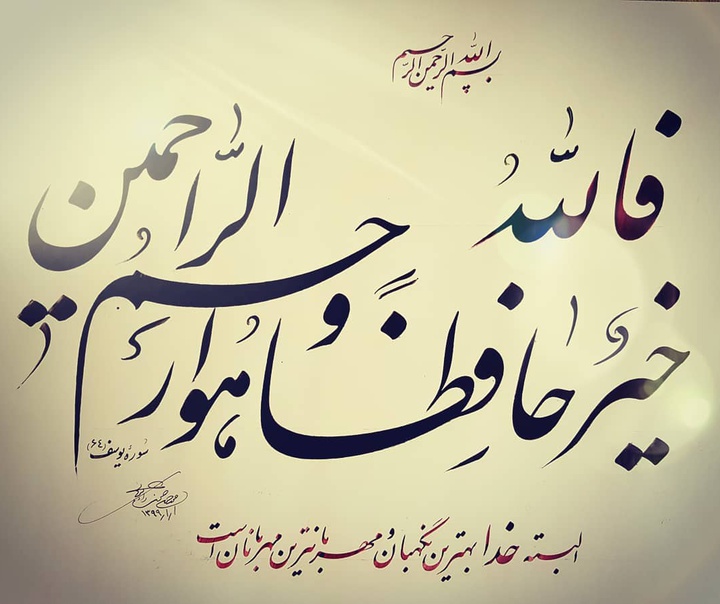 بسم الله الرحمن الرحیم
فالله خیرٌ حافظاً و هو ارحم الراحمین
سورهٔ یوسف (٦٤)
۱۳۹۹
البته خدا بهترین نگهبان و مهربانترین مهربانان است